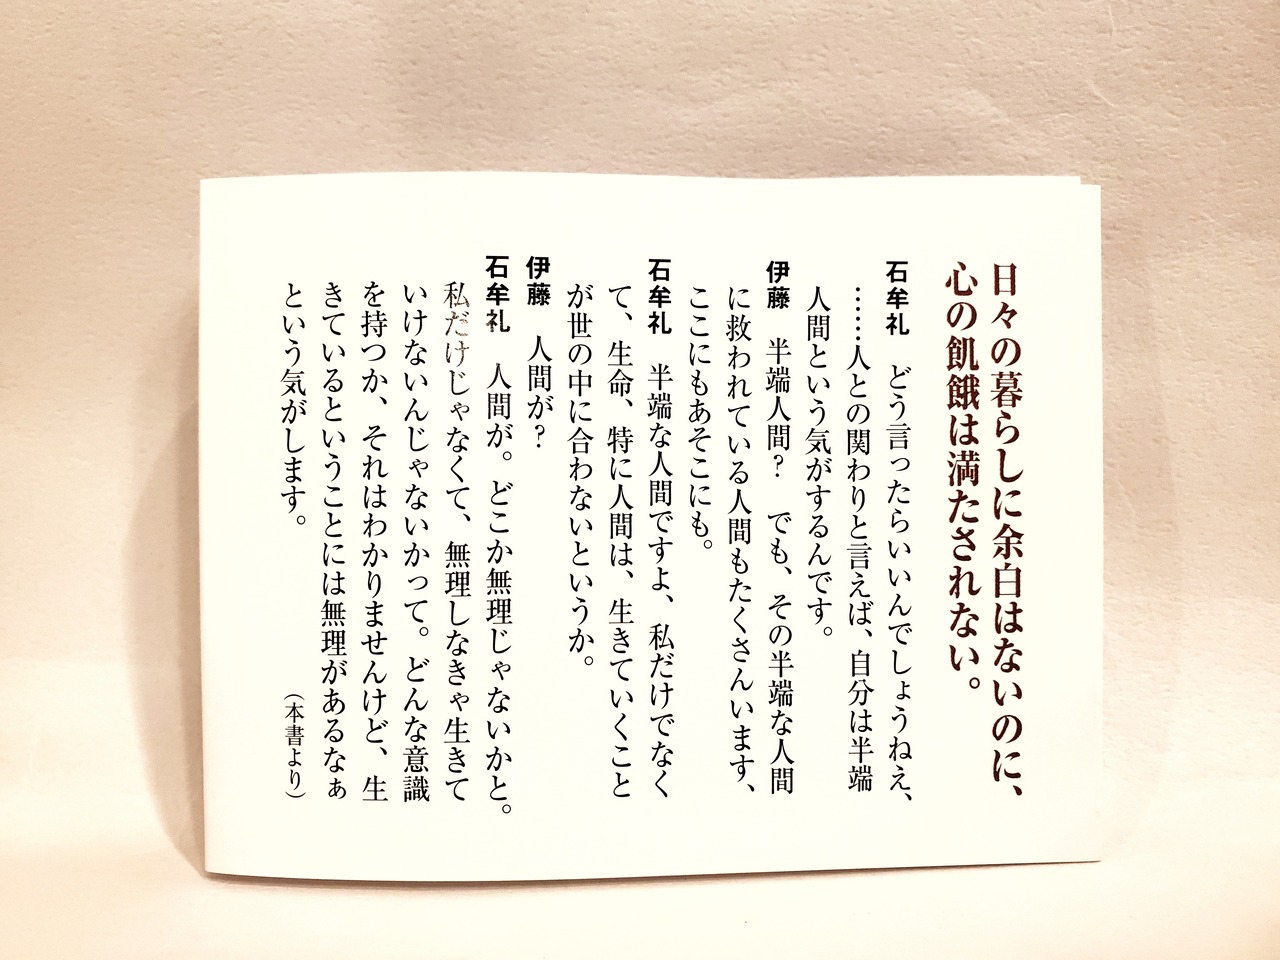 日々の暮らしに余白はないのに、
心の飢餓は満たされない。
石牟礼　どう言ったらいいんでしょうねえ、
……人との関わりと言えば、自分は半端
人間という気がするんです。
伊藤　半端人間？　でも、その半端な人間
に救われている人間もたくさんいます、
ここにもあそこにも。
石牟礼　半端な人間ですよ、私だけでなく
て、生命、特に人間は、生きていくこと
が世の中に合わないというか。
伊藤　人間が？
石牟礼　人間が。どこか無理じゃないかと。
私だけじゃなくて、無理しなきゃ生きて
いけないんじゃないかって。どんな意識
を持つか、それはわかりませんけど、生
きているということには無理があるなぁ
という気がします。
（本書より）